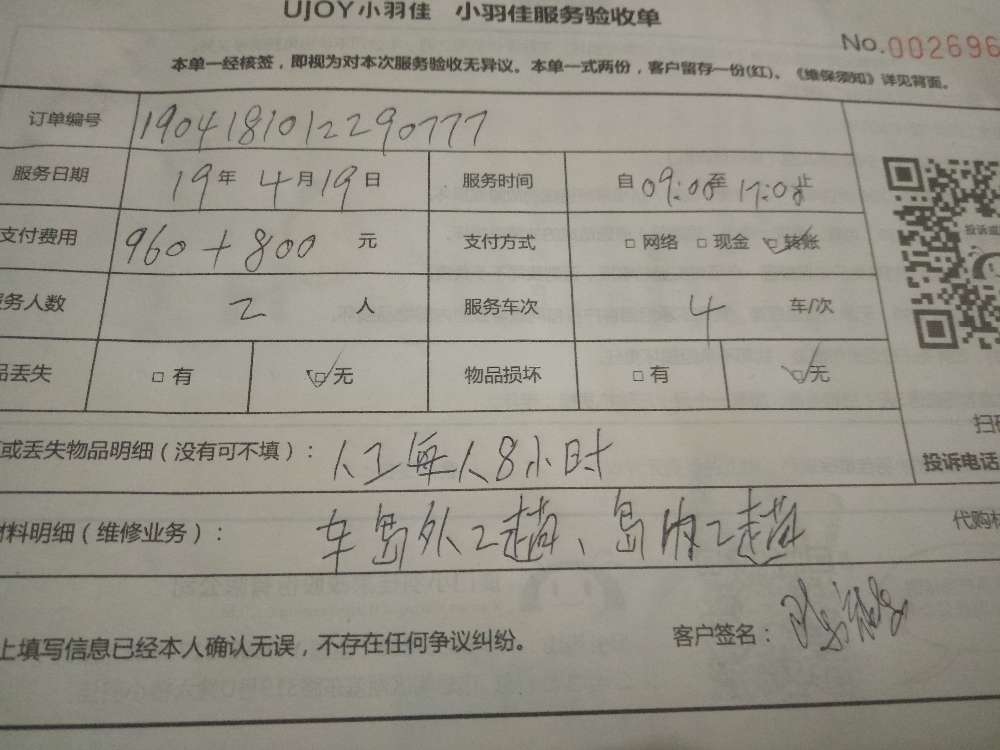 UJOY小羽佳 小羽佳服务验收单
No.002696
本单一经核签，即视为对本次服务验收无异议。本单一式两份，客户留存一份(红)。《维保须知》详见背面。
订单编号 1904181012290777
服务日期 19年4月19日 服务时间 自09:00至17:00止
支付费用 960+800 元 支付方式 □网络 □现金 ☑转账
服务人数 2 人 服务车次 4 车/次
品丢失 □有 ☑无 物品损坏 □有 ☑无
投诉或
或丢失物品明细（没有可不填）： 人工每人8小时
扫
投诉电话
材料明细（维修业务）： 车岛外2趟、岛内2趟
代购
上填写信息已经本人确认无误，不存在任何争议纠纷。 客户签名：